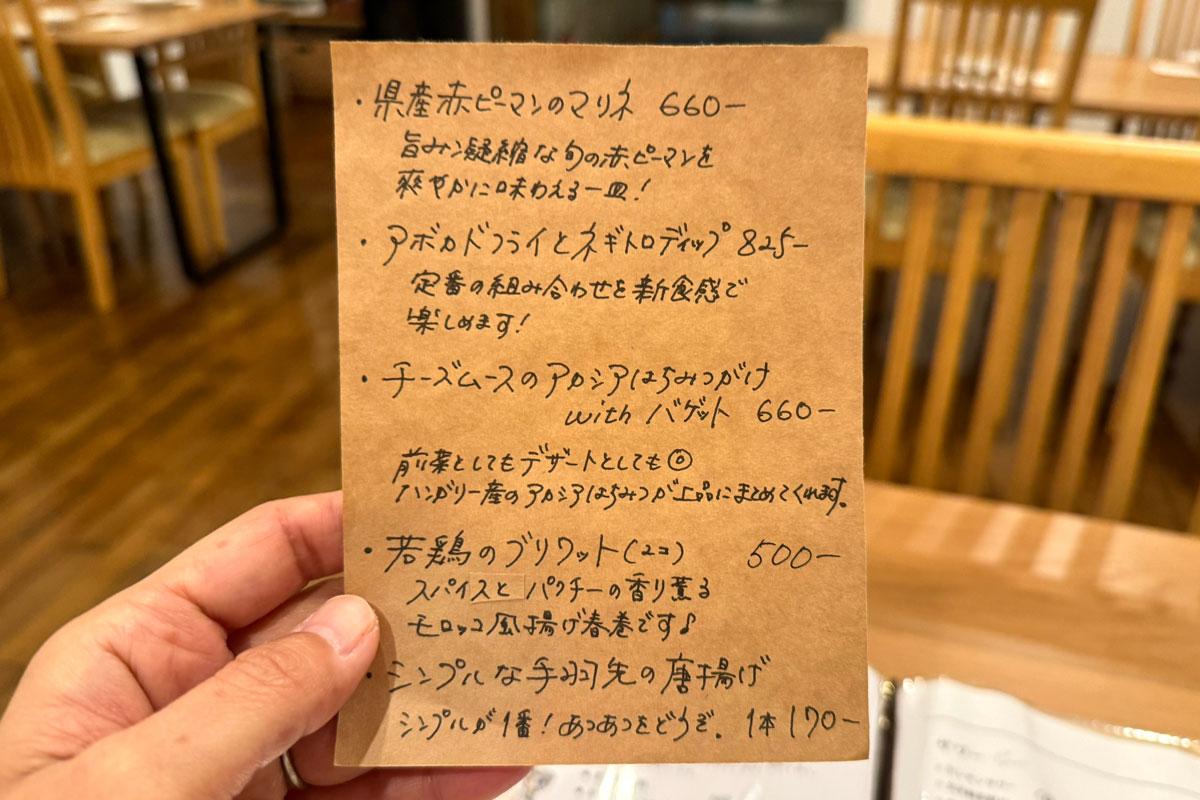 ・県産赤ピーマンのマリネ 660ー
旨み凝縮な旬の赤ピーマンを
爽やかに味わえる一皿!
・アボカドフライとネギトロディップ 825ー
定番の組み合わせを新食感で
楽しめます!
・チーズムースのアカシアはちみつがけ
with バゲット 660ー
前菜としてもデザートとしても◎
ハンガリー産のアカシアはちみつが上品にまとめてくれます。
・若鶏のブリワット(2コ) 500ー
スパイスとパクチーの香り薫る
モロッコ風揚げ春巻です♪
・シンプルな手羽先の唐揚げ
シンプルが1番!あつあつをどうぞ。 1本170ー